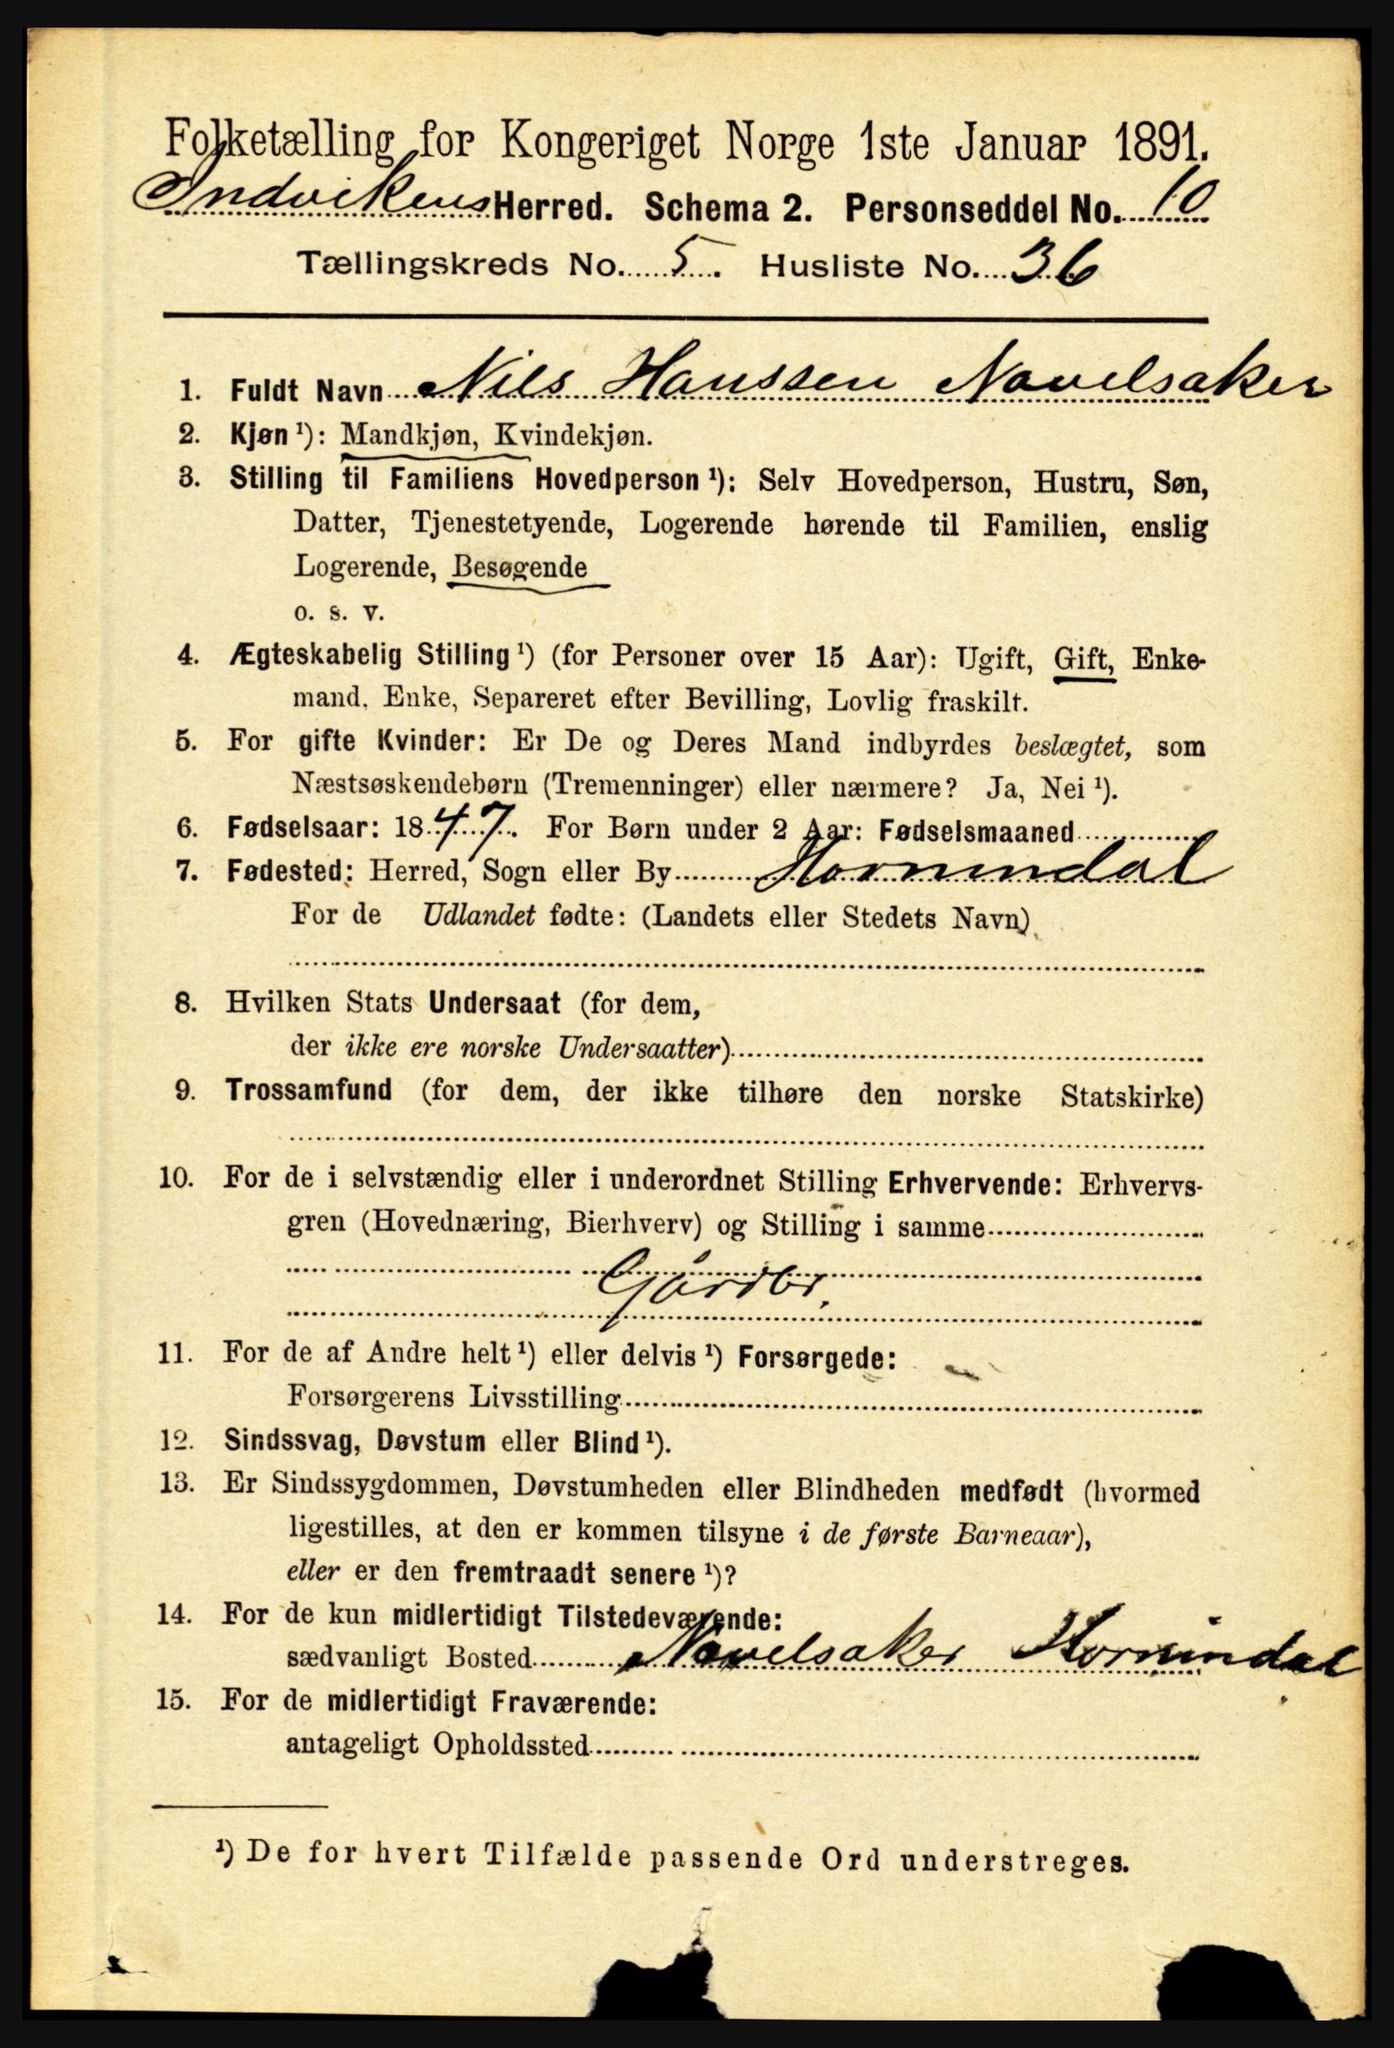 Folketælling for Kongeriget Norge 1ste Januar 1891.
Indvikens Herred. Schema 2. Personseddel No. 10
Tællingskreds No. 5. Husliste No. 36
1. Fuldt Navn Nils Hanssen Navelsaker
2. Kjøn ¹): Mandkjøn, Kvindekjøn.
3. Stilling til Familiens Hovedperson ¹): Selv Hovedperson, Hustru, Søn,
Datter, Tjenestetyende, Logerende hørende til Familien, enslig
Logerende, Besøgende
o. s. v.
4. Ægteskabelig Stilling ¹) (for Personer over 15 Aar): Ugift, Gift, Enke-
mand, Enke, Separeret efter Bevilling, Lovlig fraskilt.
5. For gifte Kvinder: Er De og Deres Mand indbyrdes beslægtet, som
Næstsøskendebørn (Tremenninger) eller nærmere? Ja, Nei ¹).
6. Fødselsaar: 1847. For Børn under 2 Aar: Fødselsmaaned
7. Fødested: Herred, Sogn eller By Hornindal
For de Udlandet fødte: (Landets eller Stedets Navn)
8. Hvilken Stats Undersaat (for dem,
der ikke ere norske Undersaatter)
9. Trossamfund (for dem, der ikke tilhøre den norske Statskirke)
10. For de i selvstændig eller i underordnet Stilling Erhvervende: Erhvervs-
gren (Hovednæring, Bierhverv) og Stilling i samme
Gårdbr.
11. For de af Andre helt ¹) eller delvis ¹) Forsørgede:
Forsørgerens Livsstilling
12. Sindssvag, Døvstum eller Blind ¹).
13. Er Sindssygdommen, Døvstumheden eller Blindheden medfødt (hvormed
ligestilles, at den er kommen tilsyne i de første Barneaar),
eller er den fremtraadt senere ¹)?
14. For de kun midlertidigt Tilstedeværende:
sædvanligt Bosted Navelsaker Hornindal
15. For de midlertidigt Fraværende:
antageligt Opholdssted
¹) De for hvert Tilfælde passende Ord understreges.